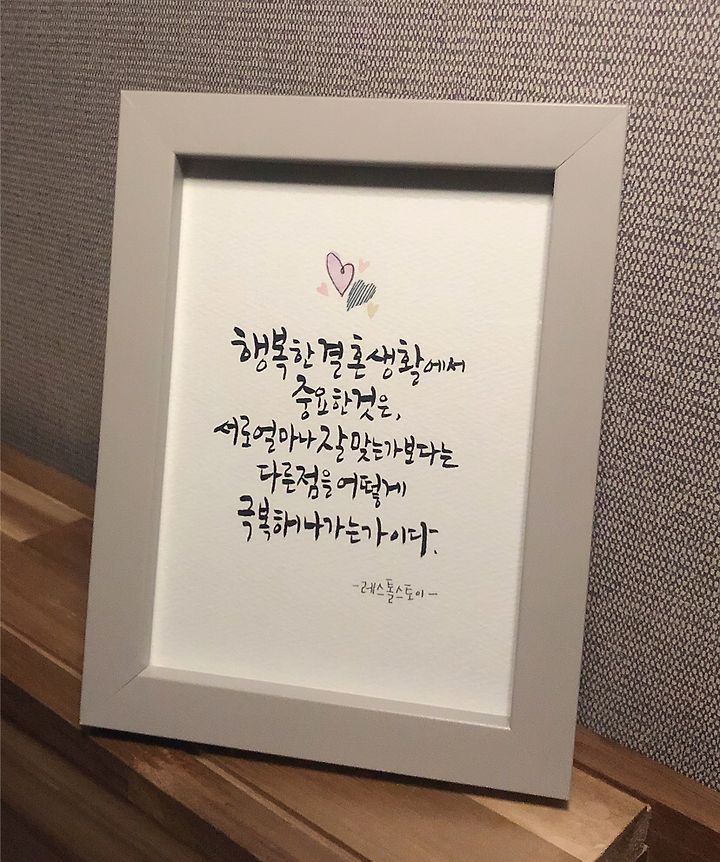 행복한 결혼생활에서
중요한것은,
서로얼마나 잘 맞는가보다는
다른점을 어떻게
극복해나가는가이다.
-레스톨스토이-